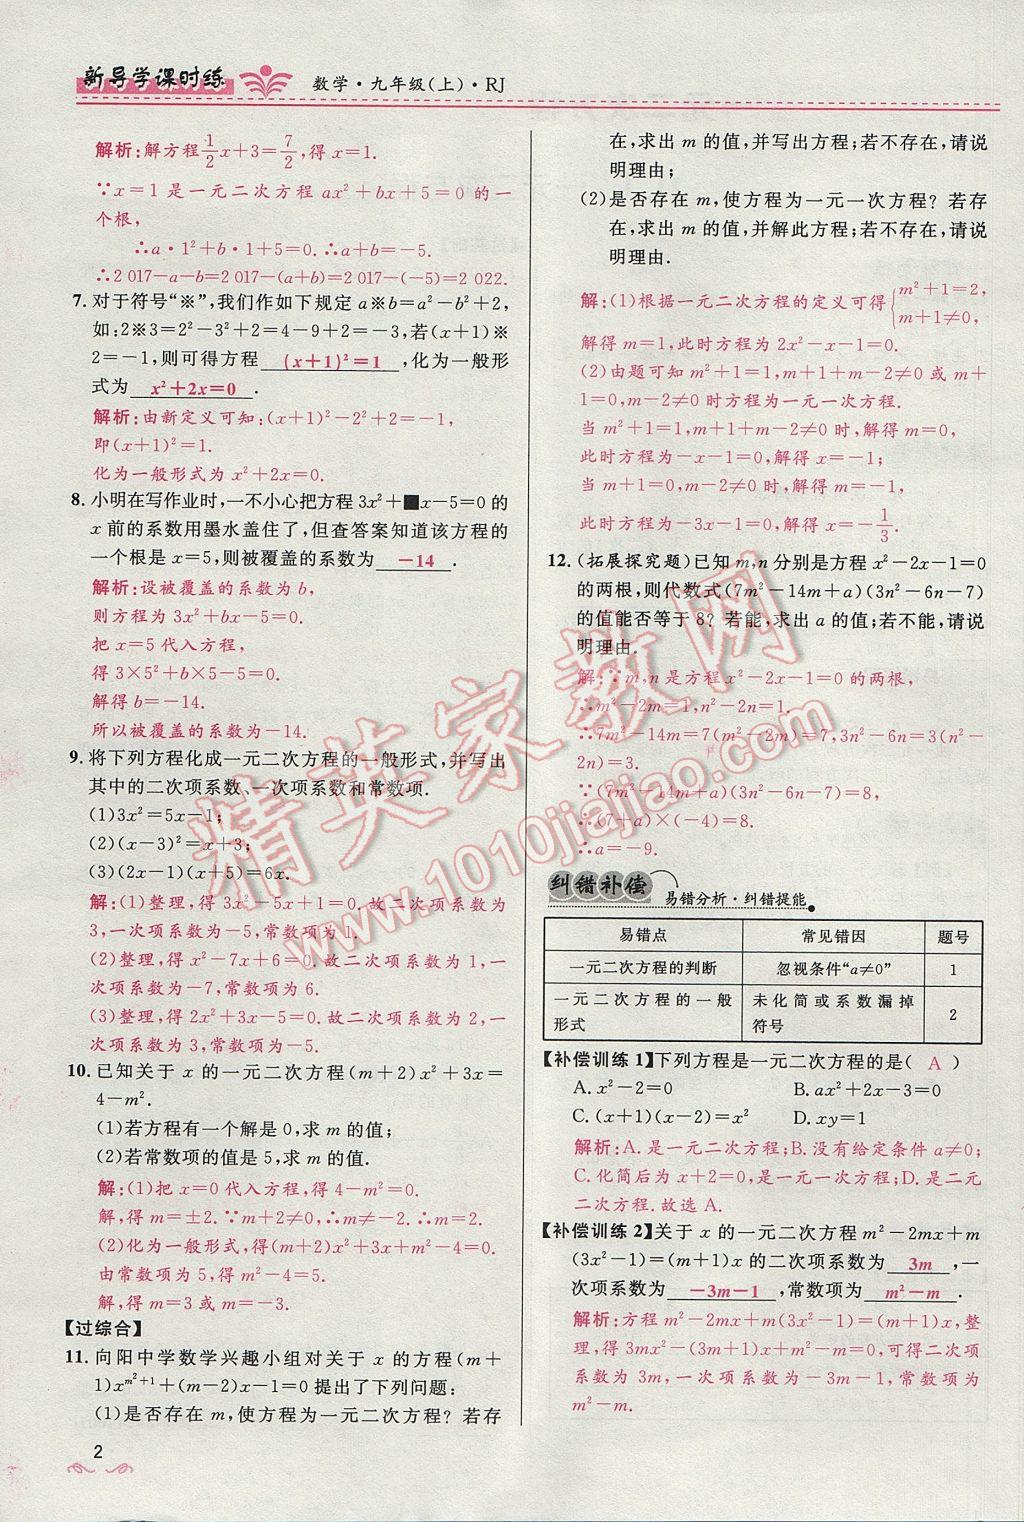 新导学课时练 数学·九年级(上)·RJ
解析:解方程1/2x+3=7/2,得x=1.
∵x=1是一元二次方程ax²+bx+5=0的一
个根,
∴a·1²+b·1+5=0.∴a+b=-5.
∴2 017-a-b=2 017-(a+b)=2 017-(-5)=2 022.
7. 对于符号“※”,我们作如下规定a※b=a²-b²+2,
如:2※3=2²-3²+2=4-9+2=-3,若(x+1)※
2=-1,则可得方程 (x+1)²=1 ,化为一般形
式为 x²+2x=0 .
解析:由新定义可知:(x+1)²-2²+2=-1,
即(x+1)²=1.
化为一般形式为x²+2x=0.
8. 小明在写作业时,一不小心把方程3x²+■x-5=0的
x前的系数用墨水盖住了,但查答案知道该方程的
一个根是x=5,则被覆盖的系数为 -14 .
解析:设被覆盖的系数为b,
则方程为3x²+bx-5=0.
把x=5代入方程,
得3×5²+b×5-5=0.
解得b=-14.
所以被覆盖的系数为-14.
9. 将下列方程化成一元二次方程的一般形式,并写出
其中的二次项系数、一次项系数和常数项.
(1)3x²=5x-1;
(2)(x-3)²=x+3;
(3)(2x-1)(x+5)=6x.
解:(1)整理,得3x²-5x+1=0.故二次项系数为
3,一次项系数为-5,常数项为1.
(2)整理,得x²-7x+6=0.故二次项系数为1,一
次项系数为-7,常数项为6.
(3)整理,得2x²+3x-5=0.故二次项系数为2,一
次项系数为3,常数项为-5.
10. 已知关于x的一元二次方程(m+2)x²+3x=
4-m².
(1)若方程有一个解是0,求m的值;
(2)若常数项的值是5,求m的值.
解:(1)把x=0代入方程,得4-m²=0.
解,得m=±2.∵m+2≠0,∴m≠-2.∴m=2.
(2)化为一般形式,得(m+2)x²+3x+m²-4=0.
由常数项为5,得m²-4=5.
解,得m=3或m=-3.
【过综合】
11. 向阳中学数学兴趣小组对关于x的方程(m+
1)x^(m²+1)+(m-2)x-1=0提出了下列问题:
(1)是否存在m,使方程为一元二次方程?若存
2
在,求出m的值,并写出方程;若不存在,请说
明理由;
(2)是否存在m,使方程为一元一次方程?若存
在,求出m的值,并解此方程;若不存在,请说
明理由.
解:(1)根据一元二次方程的定义可得{m²+1=2,
m+1≠0,
解得m=1,此时方程为2x²-x-1=0.
(2)由题可知m²+1=1,m+1+m-2≠0或m+
1=0,m-2≠0时方程为一元一次方程.
当m²+1=1,m+1+m-2≠0时,解得m=0,
此时方程为-x-1=0,解得x=-1;
当m+1=0,m-2≠0时,解得m=-1,
此时方程为-3x-1=0,解得x=-1/3.
12. (拓展探究题)已知m,n分别是方程x²-2x-1=0
的两根,则代数式(7m²-14m+a)(3n²-6n-7)
的值能否等于8?若能,求出a的值;若不能,请说
明理由.
解:∵m,n是方程x²-2x-1=0的两根,
∴m²-2m=1,n²-2n=1.
∴7m²-14m=7(m²-2m)=7,3n²-6n=3(n²-
2n)=3.
∵(7m²-14m+a)(3n²-6n-7)=8,
∴(7+a)×(-4)=8.
∴a=-9.
纠错补偿 易错分析·纠错提能
易错点 常见错因 题号
一元二次方程的判断 忽视条件“a≠0” 1
一元二次方程的一般形式 未化简或系数漏掉符号 2
【补偿训练1】下列方程是一元二次方程的是( A )
A. x²-2=0 B. ax²+2x-3=0
C. (x+1)(x-2)=x² D. xy=1
解析:A. 是一元二次方程;B. 没有给定条件a≠0;
C. 化简后为x+2=0,是一元一次方程;D. 是二元
二次方程. 故选A.
【补偿训练2】关于x的一元二次方程m²-2mx+m
(3x²-1)=(m+1)x的二次项系数为 3m ,一
次项系数为 -3m-1 ,常数项为 m²-m .
解析:方程m²-2mx+m(3x²-1)=(m+1)x,整
理,得3mx²-(3m+1)x+m²-m=0,可得二次项
系数为3m,一次项系数为-3m-1,常数项为
m²-m.
精英家教网
www.1010jiajiao.com